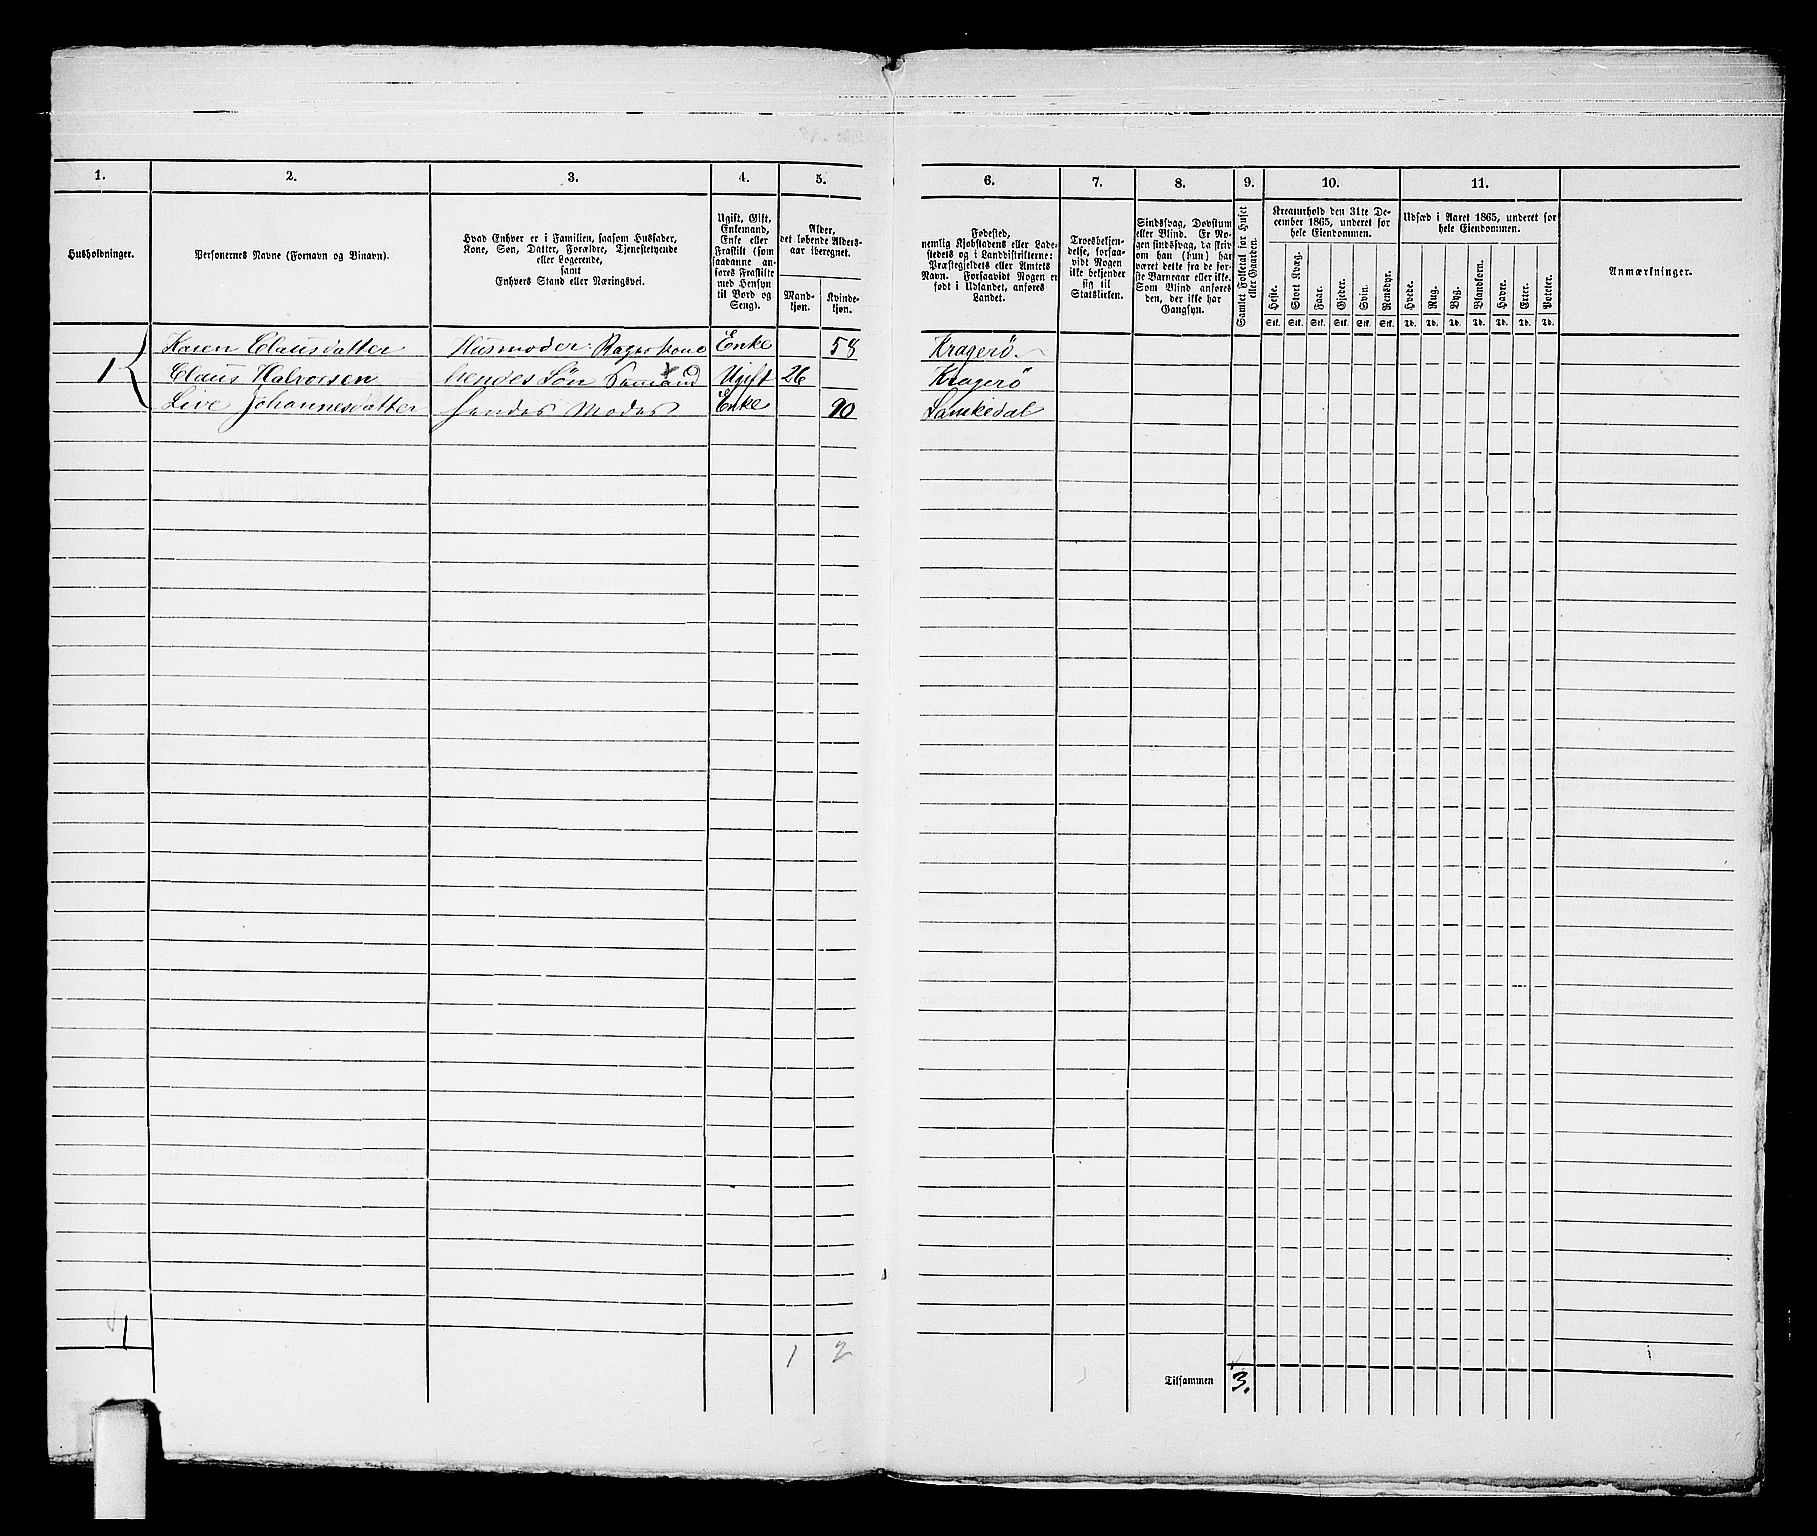 1. 2. 3. 4. 5. 6. 7. 8. 9. 10. 11.
Husholdninger.
Personernes Navne (Fornavn og Binavn).
Hvad Enhver er i Familien, saasom Husfader,
Kone, Søn, Datter, Forældre, Tjenestetyende
eller Logerende,
samt
Enhvers Stand eller Næringsvei.
Ugift, Gift,
Enkemand,
Enke eller
Fraskilt (som
saadanne an-
føres Fraskilte
med Hensyn
til Bord og
Seng).
Alder,
det løbende Alders-
aar iberegnet.
Mand-
kjøn.
Kvinde-
kjøn.
Fødested,
nemlig Kjøbstadens eller Lade-
stedets og i Landdistrikterne:
Præstegjeldets eller Amtets
Navn. Forsaavidt Nogen er
født i Udlandet, anføres
Landet.
Troesbekjen-
delse, forsaa-
vidt Nogen
ikke bekjender
sig til
Statskirken.
Sindssvag, Døvstum
eller Blind. Er No-
gen sindssvag, da skriv
om han (hun) har
været dette fra de før-
ste Barneaar eller ikke.
Som Blind anføres
den, der ikke har
Gangsyn.
Samlet Folketal for Huset
eller Gaarden.
Kreaturhold den 31te De-
cember 1865, underet for
hele Eiendommen.
Heste. Stort Kvæg. Faar. Gjeder. Svin. Rensdyr.
Stk. Stk. Stk. Stk. Stk. Stk.
Udsæd i Aaret 1865, underet for
hele Eiendommen.
Hvede. Rug. Byg. Blandkorn. Havre. Erter. Poteter.
Td. Td. Td. Td. Td. Td. Td.
Anmærkninger.
Karen Clausdatter Husmoder Enke 58 Kragerö
1 Claus Halvorsen hendes Søn Sømand Ugift 26 Kragerö
Live Johannesdatter hendes Moder Enke 90 Sannikedal
1
1 2
Tilsammen 3.